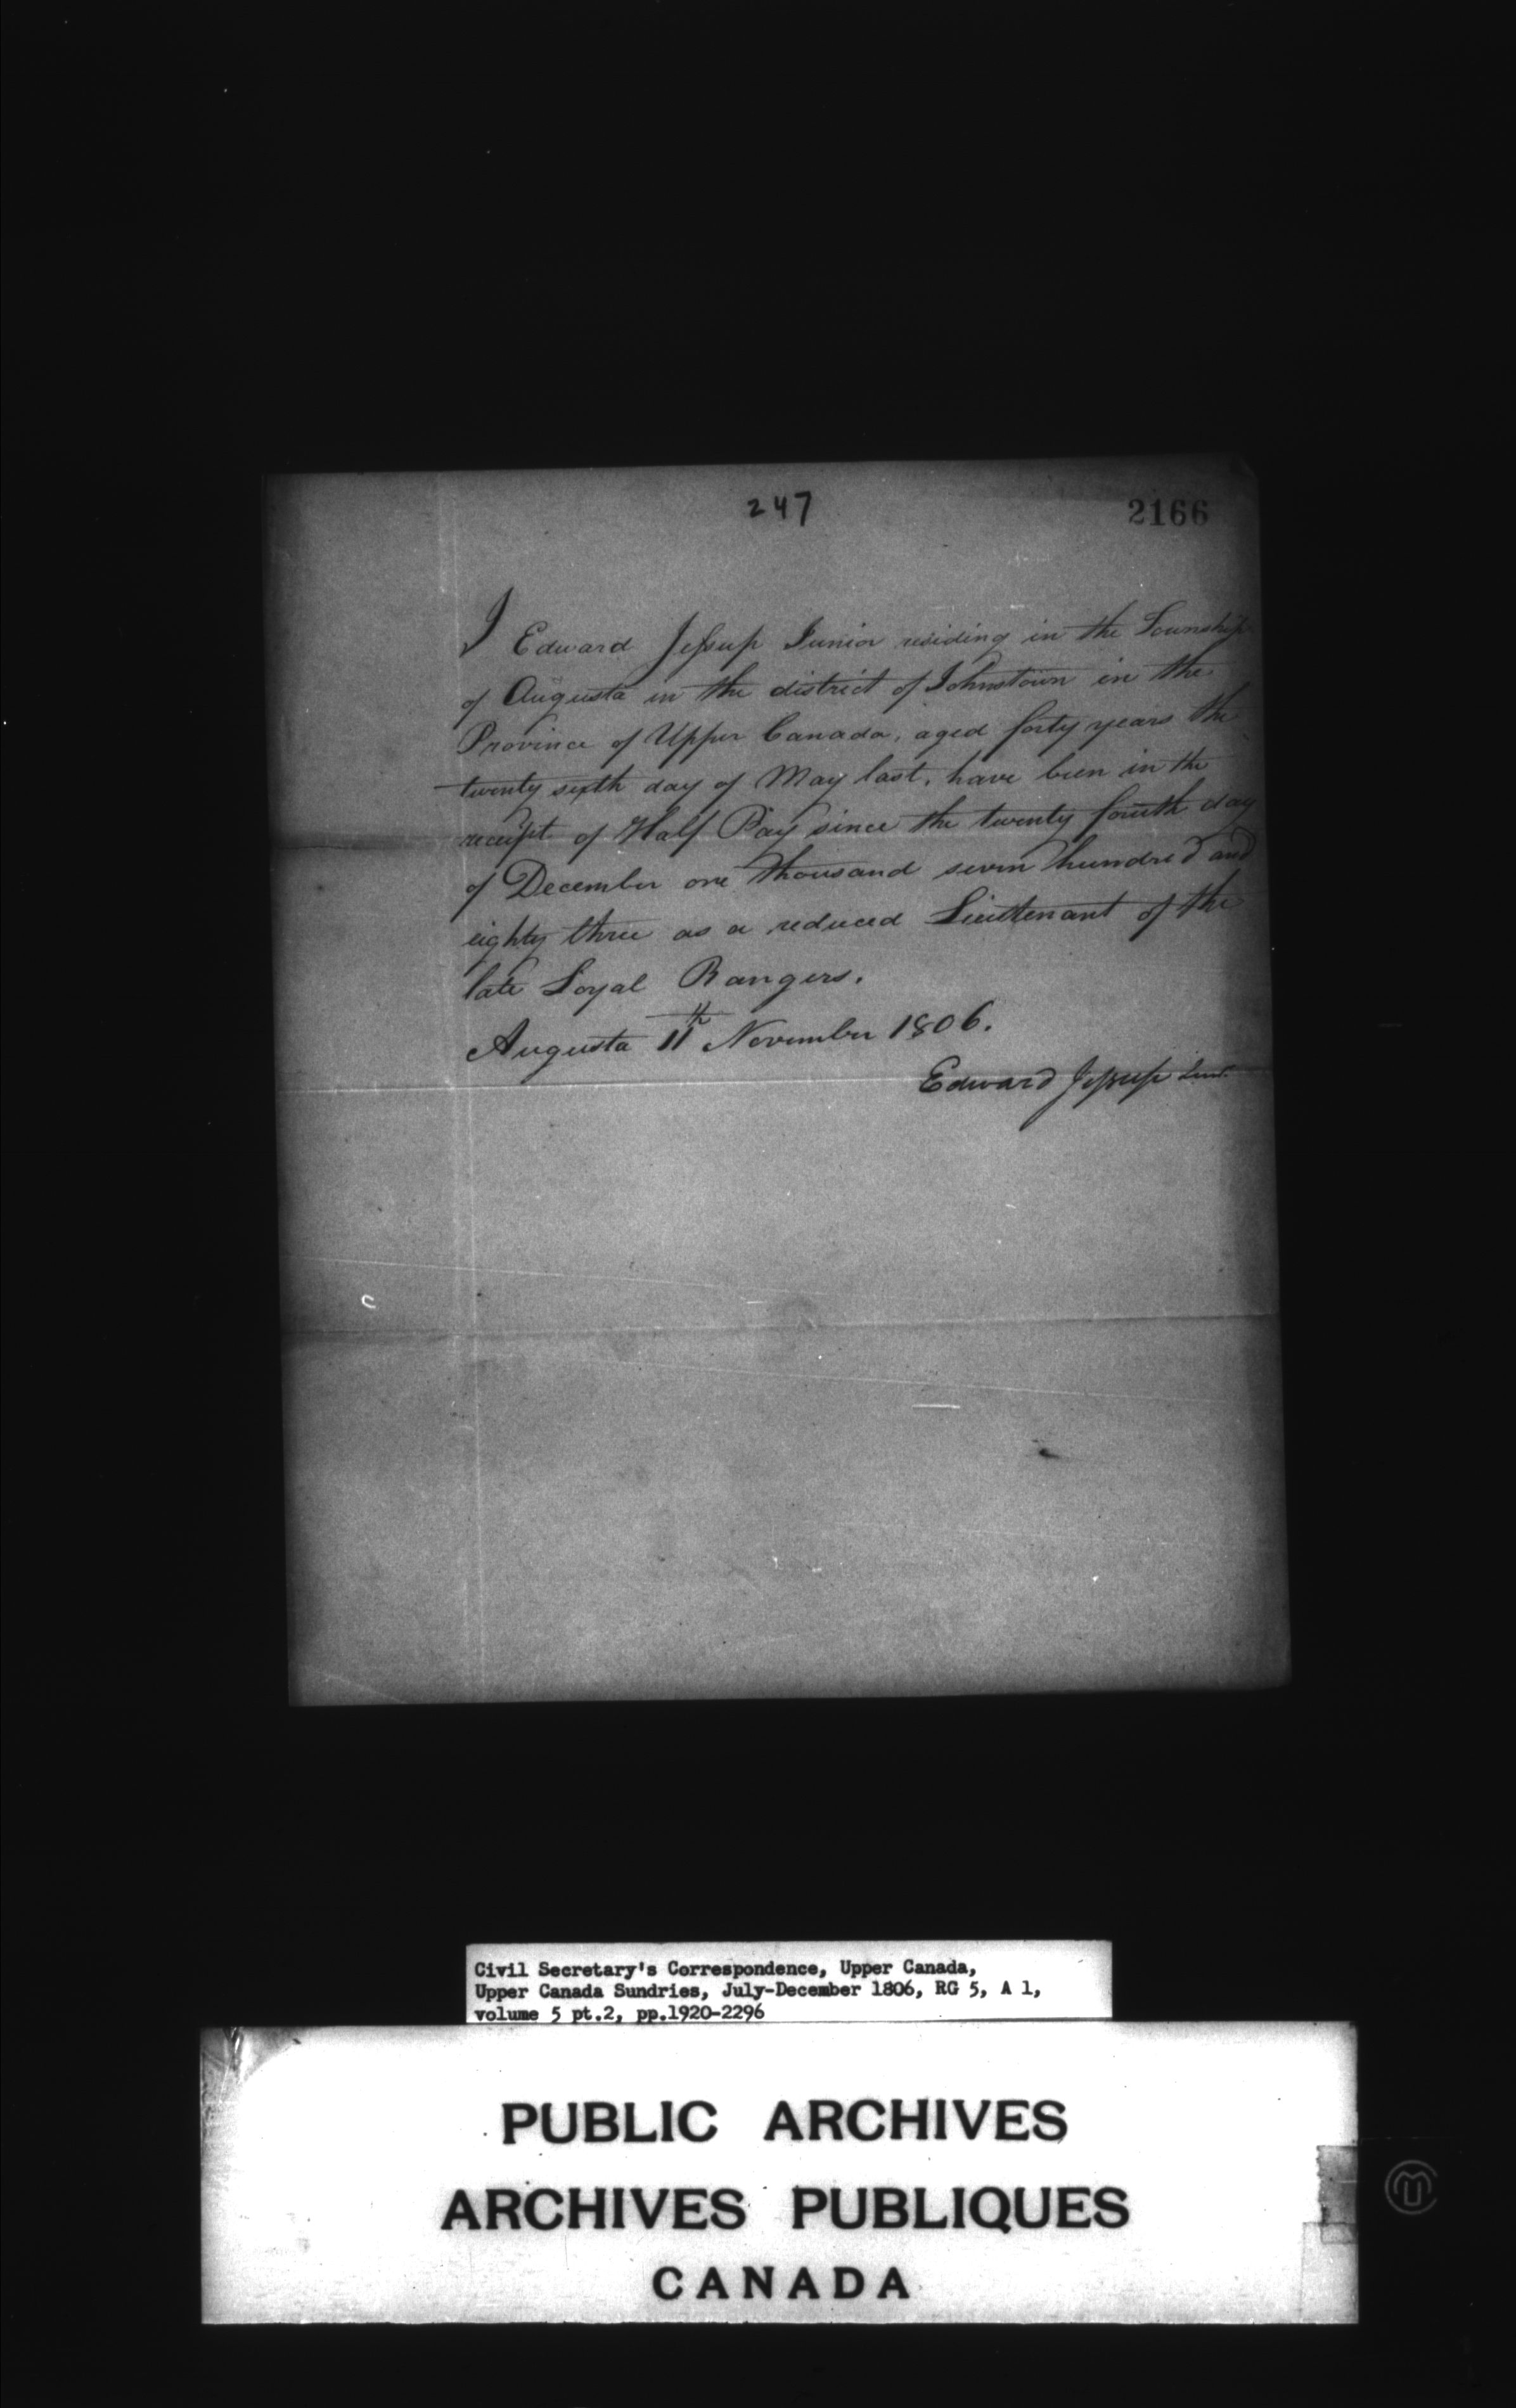 247
2166
I Edward Jessup Junior residing in the Township
of Augusta in the district of Johnstown in the
Province of Upper Canada, aged forty years the
twenty sixth day of May last, have been in the
receipt of Half Pay since the twenty fourth day
of December one thousand seven hundred and
eighty three as a reduced Lieutenant of the
late Loyal Rangers.
Augusta 11th November 1806.
Edward Jessup Lieut.
Civil Secretary's Correspondence, Upper Canada,
Upper Canada Sundries, July-December 1806, RG 5, A 1,
volume 5 pt.2, pp.1920-2296
PUBLIC ARCHIVES
ARCHIVES PUBLIQUES
CANADA